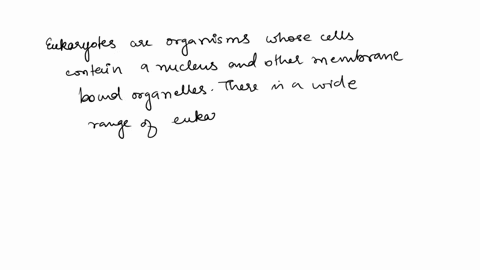 Eukaryotes are organisms whose cells
contain a nucleus and other membrane
bound organelles. There is a wide
range of euka